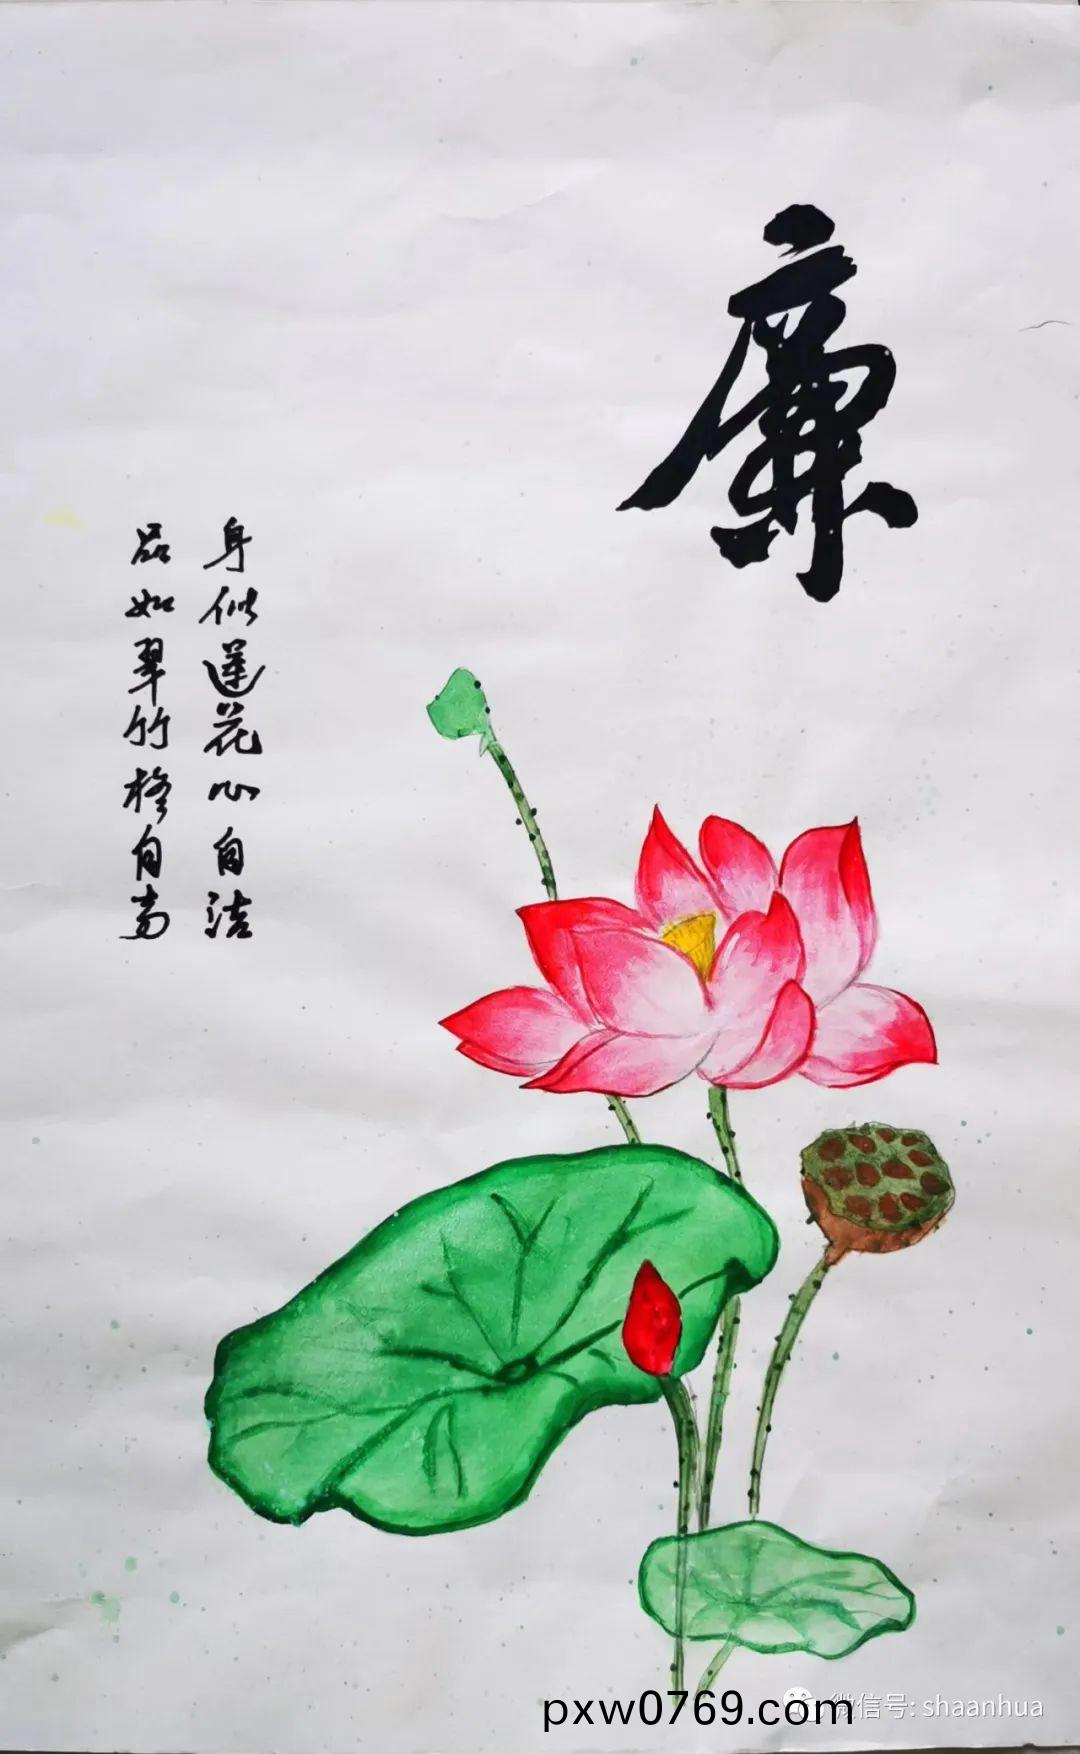 廉
身似莲花心自洁
品如翠竹格自高
微信号: shaanhua
pxw0769.com